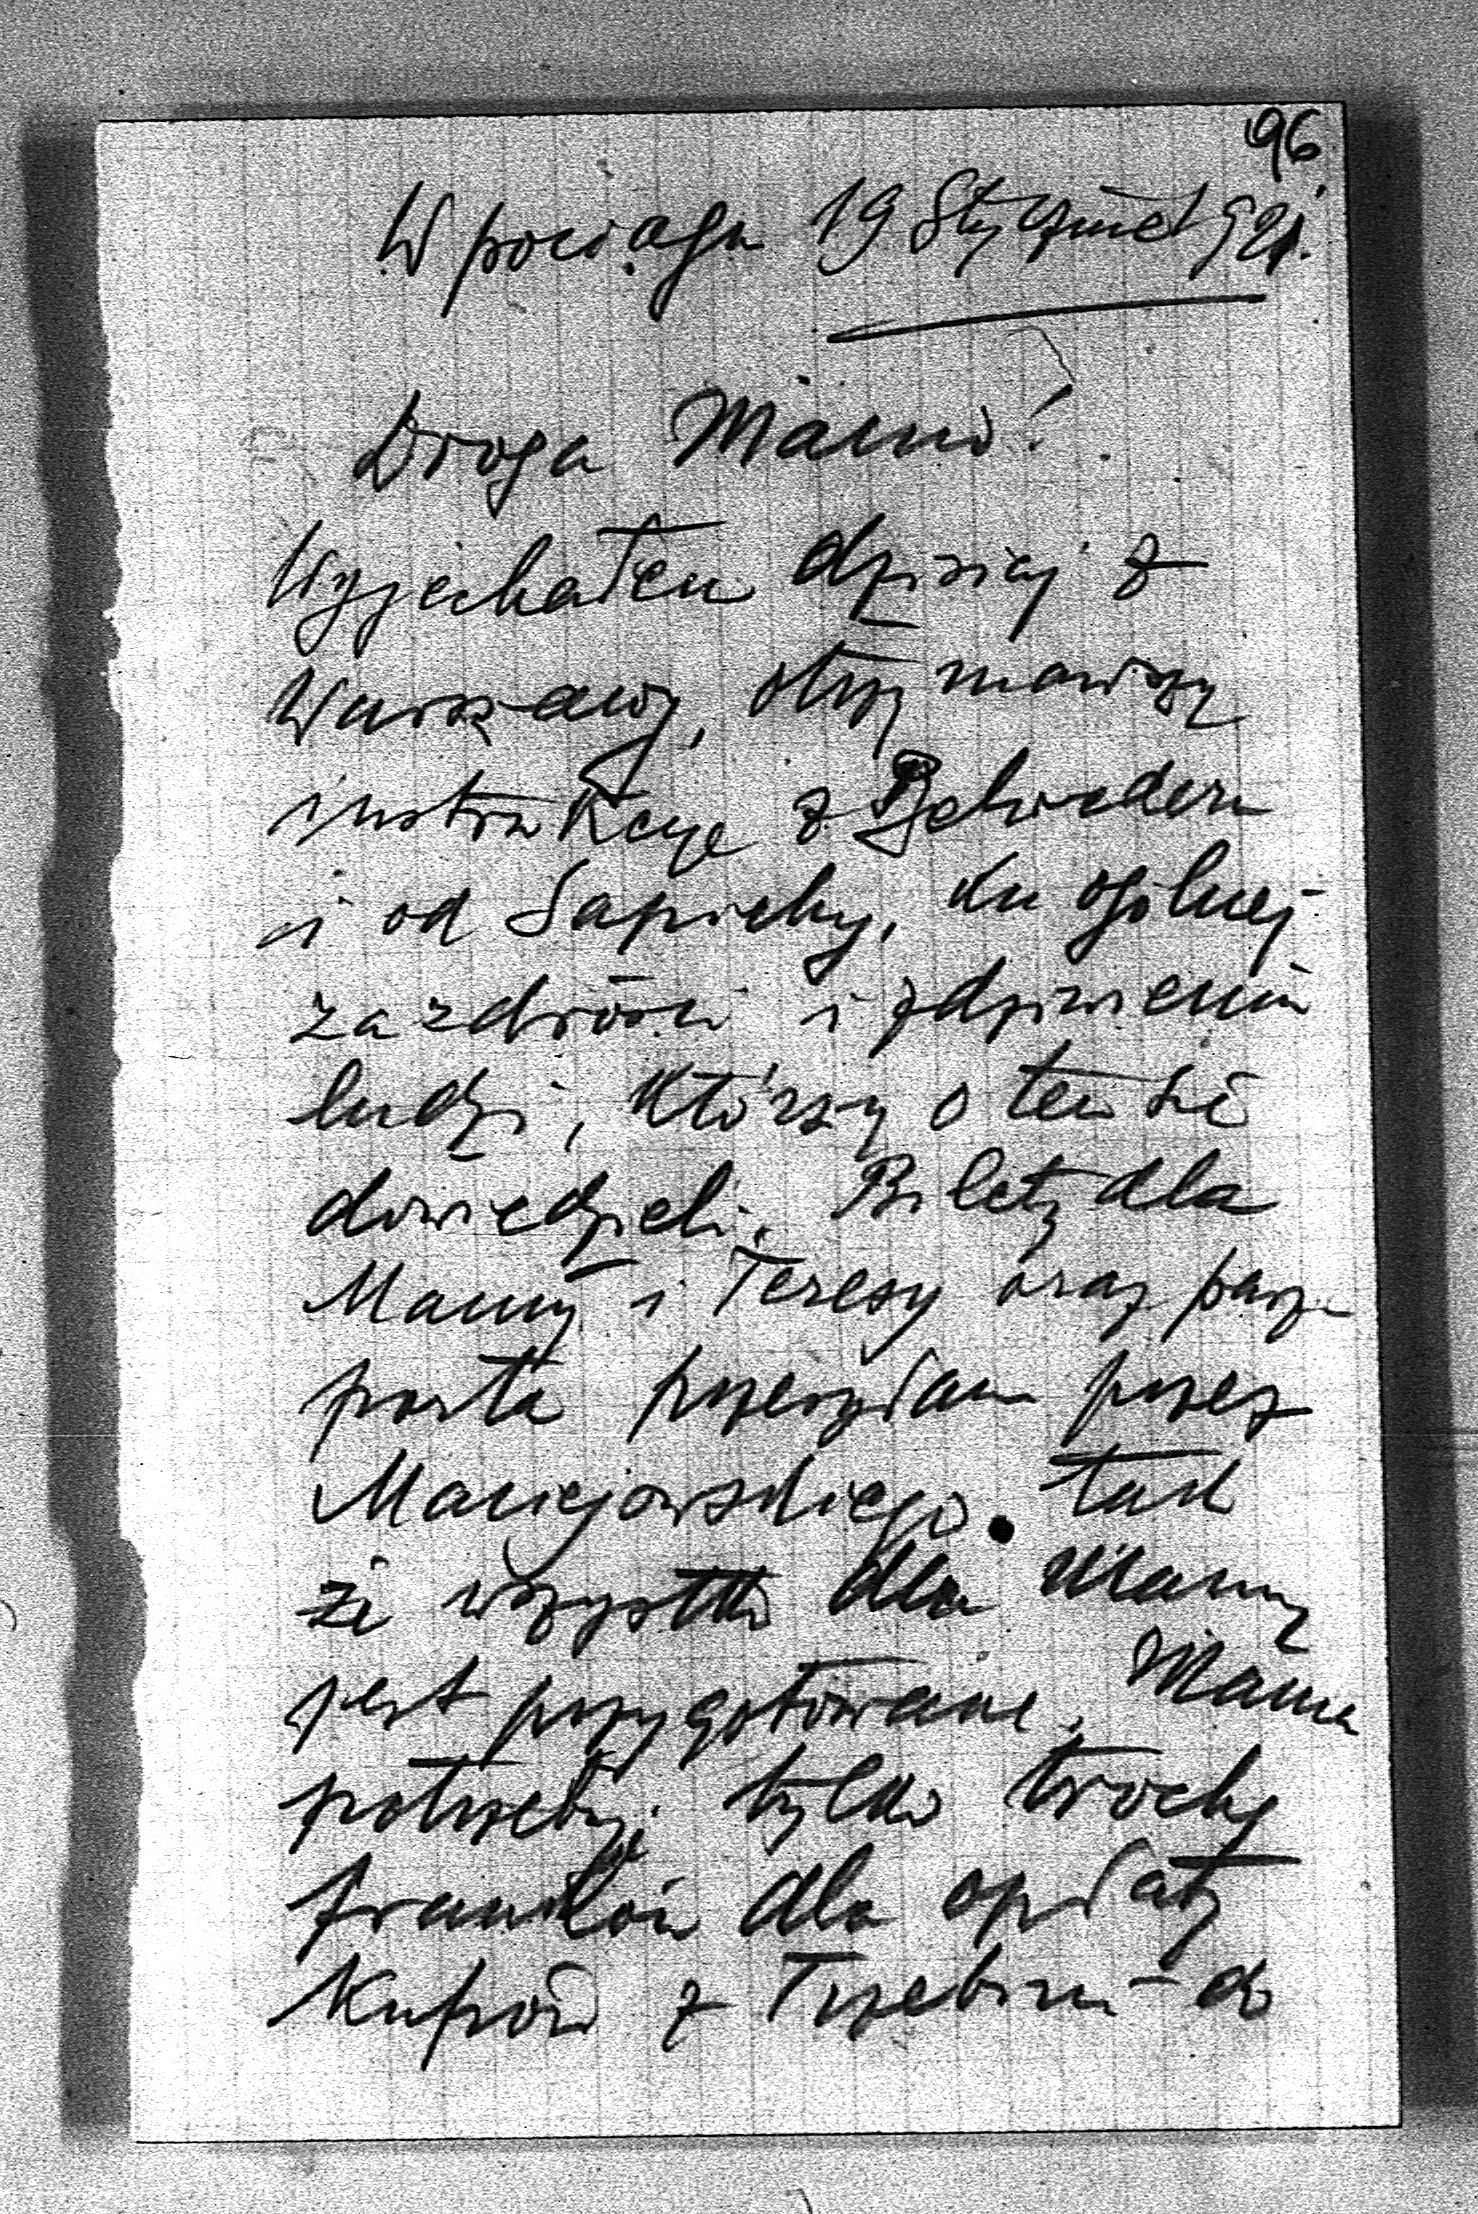 96
W pociągu 19 Stycznia 1921.
Droga Mamo!
Wyjechałem dzisiaj z
Warszawy, otrzymawszy
instrukcye z Belwederu
i od Sapiehy, ku ogólnej
zazdrości i zdziwieniu
ludzi, którzy o tem się
dowiedzieli. Bilety dla
Mamy i Teresy oraz pasz-
porta przesyłam przez
Maciejowskiego. tak
że wszystko dla Mamy
jest przygotowane. Mama
potrzebuje tylko trochę
franków dla opłaty
kufrów z Trzebini do